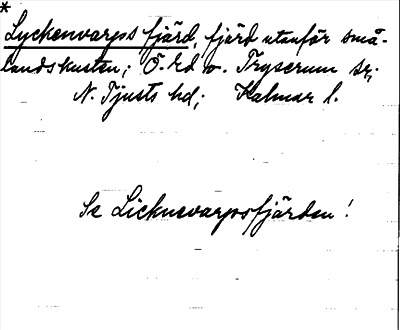 *
Lyckenvarps fjärd, fjärd utanför små-
landskusten; Ö. Ed o. Tryserum sr;
N. Tjusts hd; Kalmar l.
Se Licknevarpsfjärden!